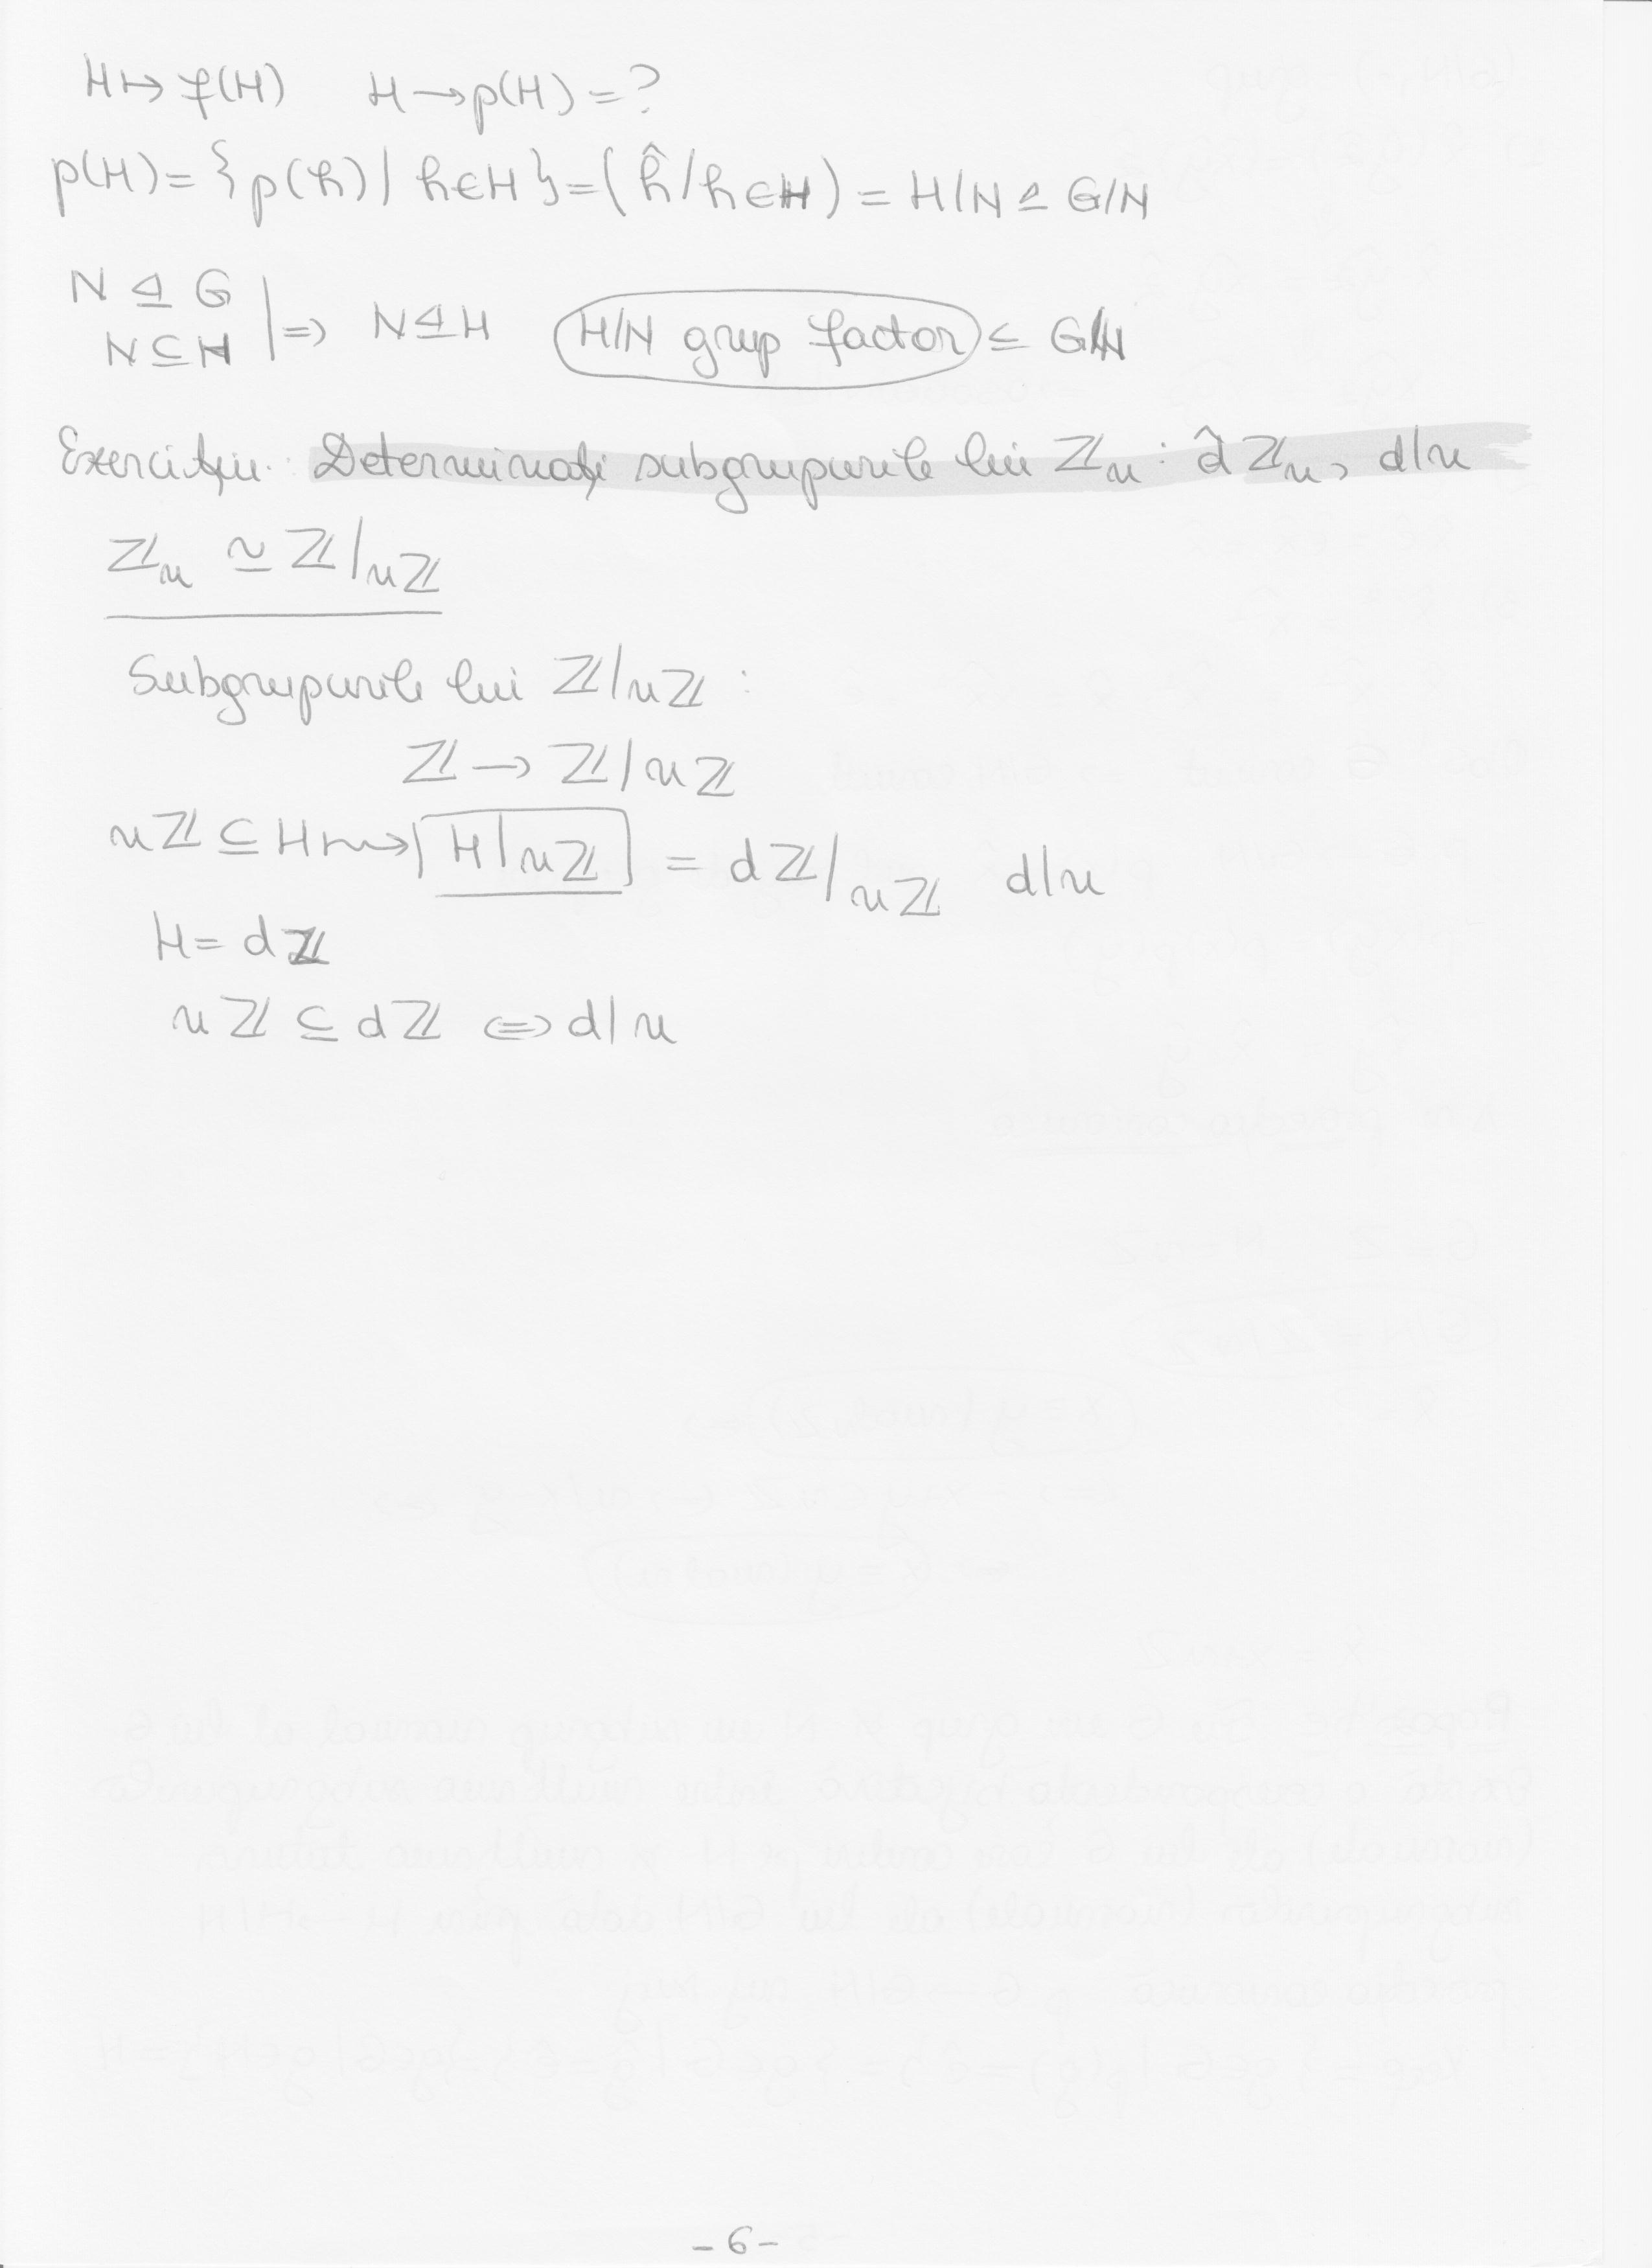 H ↦ f(H) H → p(H) = ?
p(H) = {p(h) | h ∈ H} = (ĥ / h ∈ H) = H/N ≤ G/N
N ⊴ G
N ⊆ H | ⇒ N ⊴ H H/N grup factor ≤ G/N
Exercițiu: Determinați subgrupurile lui ℤn : d̂ ℤn, d|n
ℤn ≃ ℤ/nℤ
Subgrupurile lui ℤ/nℤ :
ℤ → ℤ/nℤ
nℤ ⊆ H ⟿ H/nℤ = dℤ/nℤ d|n
H = dℤ
nℤ ⊆ dℤ ⇔ d|n
- 6 -